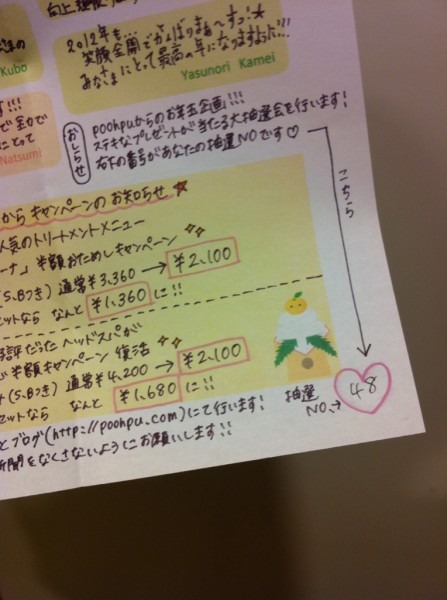 Kubo
2012年も…
笑顔全開でがんばりまーすっ!★
みなさまにとって最高の年になりますように!!!
Yasunori Kamei
Natsumi
おしらせ
poohpuからのお年玉企画!!!
ステキなプレゼントが当たる大抽選会を行います!
右下の番号があなたの抽選NOです♡
こちら
からキャンペーンのお知らせ★
人気のトリートメントメニュー
半額おためしキャンペーン
(S.Bつき) 通常¥3,360→¥2,100
セットなら なんと ¥1,360に!!
好評だったヘッドスパが
半額キャンペーン 復活
(S.Bつき) 通常¥4,200→¥2,100
セットなら なんと ¥1,680に!!
とブログ(http://poohpu.com)にて行います!
抽選NO.→ 48
新聞をなくさないようにお願いします!!